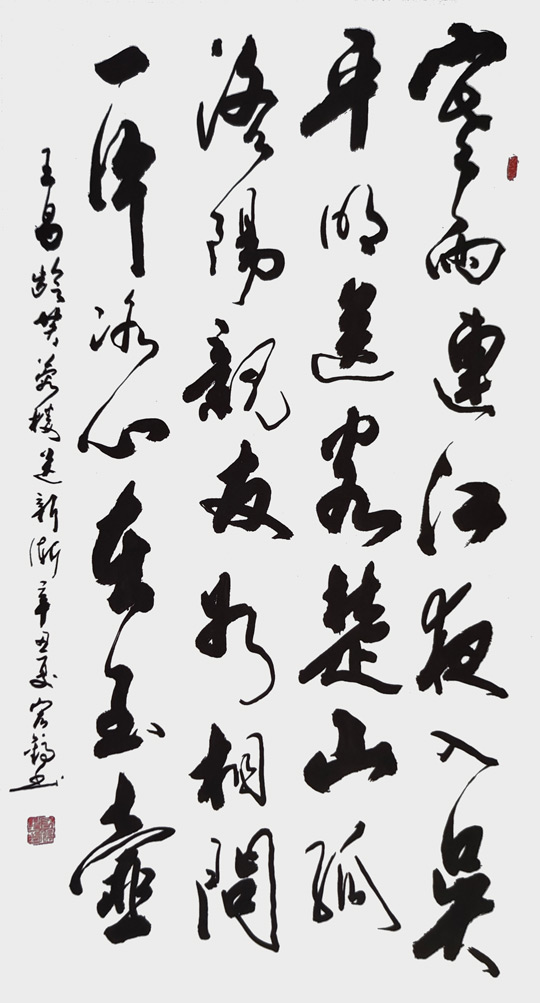 寒雨連江夜入吳
平明送客楚山孤
洛陽親友如相問
一片冰心在玉壺
王昌齡芙蓉樓送新漸辛丑夏書